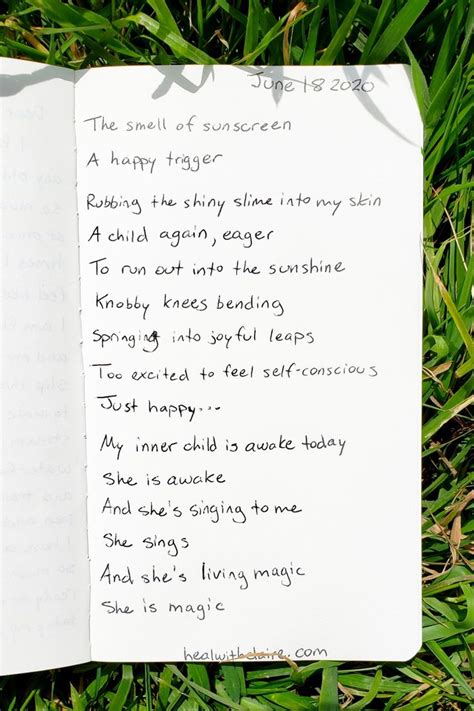 June 18 2020
The smell of sunscreen
A happy trigger
Rubbing the shiny slime into my skin
A child again, eager
To run out into the sunshine
Knobby knees bending
Springing into joyful leaps
Too excited to feel self-conscious
Just happy...
My inner child is awake today
She is awake
And she's singing to me
She sings
And she's living magic
She is magic
healwithclaire.com